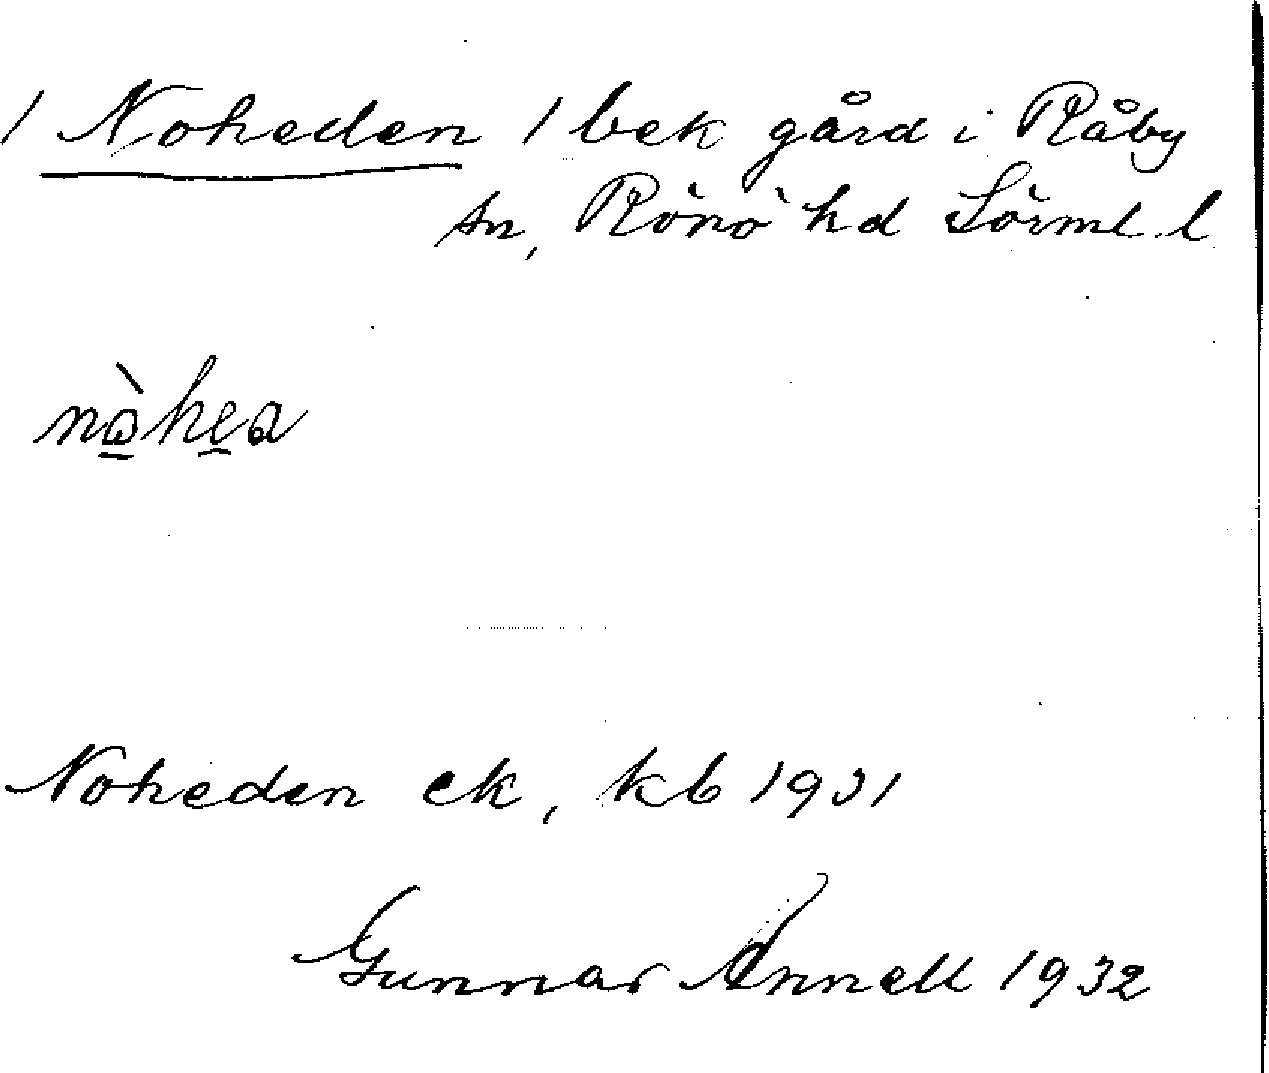 / Noheden / bek gård i Råby
sn, Rönö hd Sörml. l
nòhea
Noheden ek, kb 1931
Gunnar Annell 1932